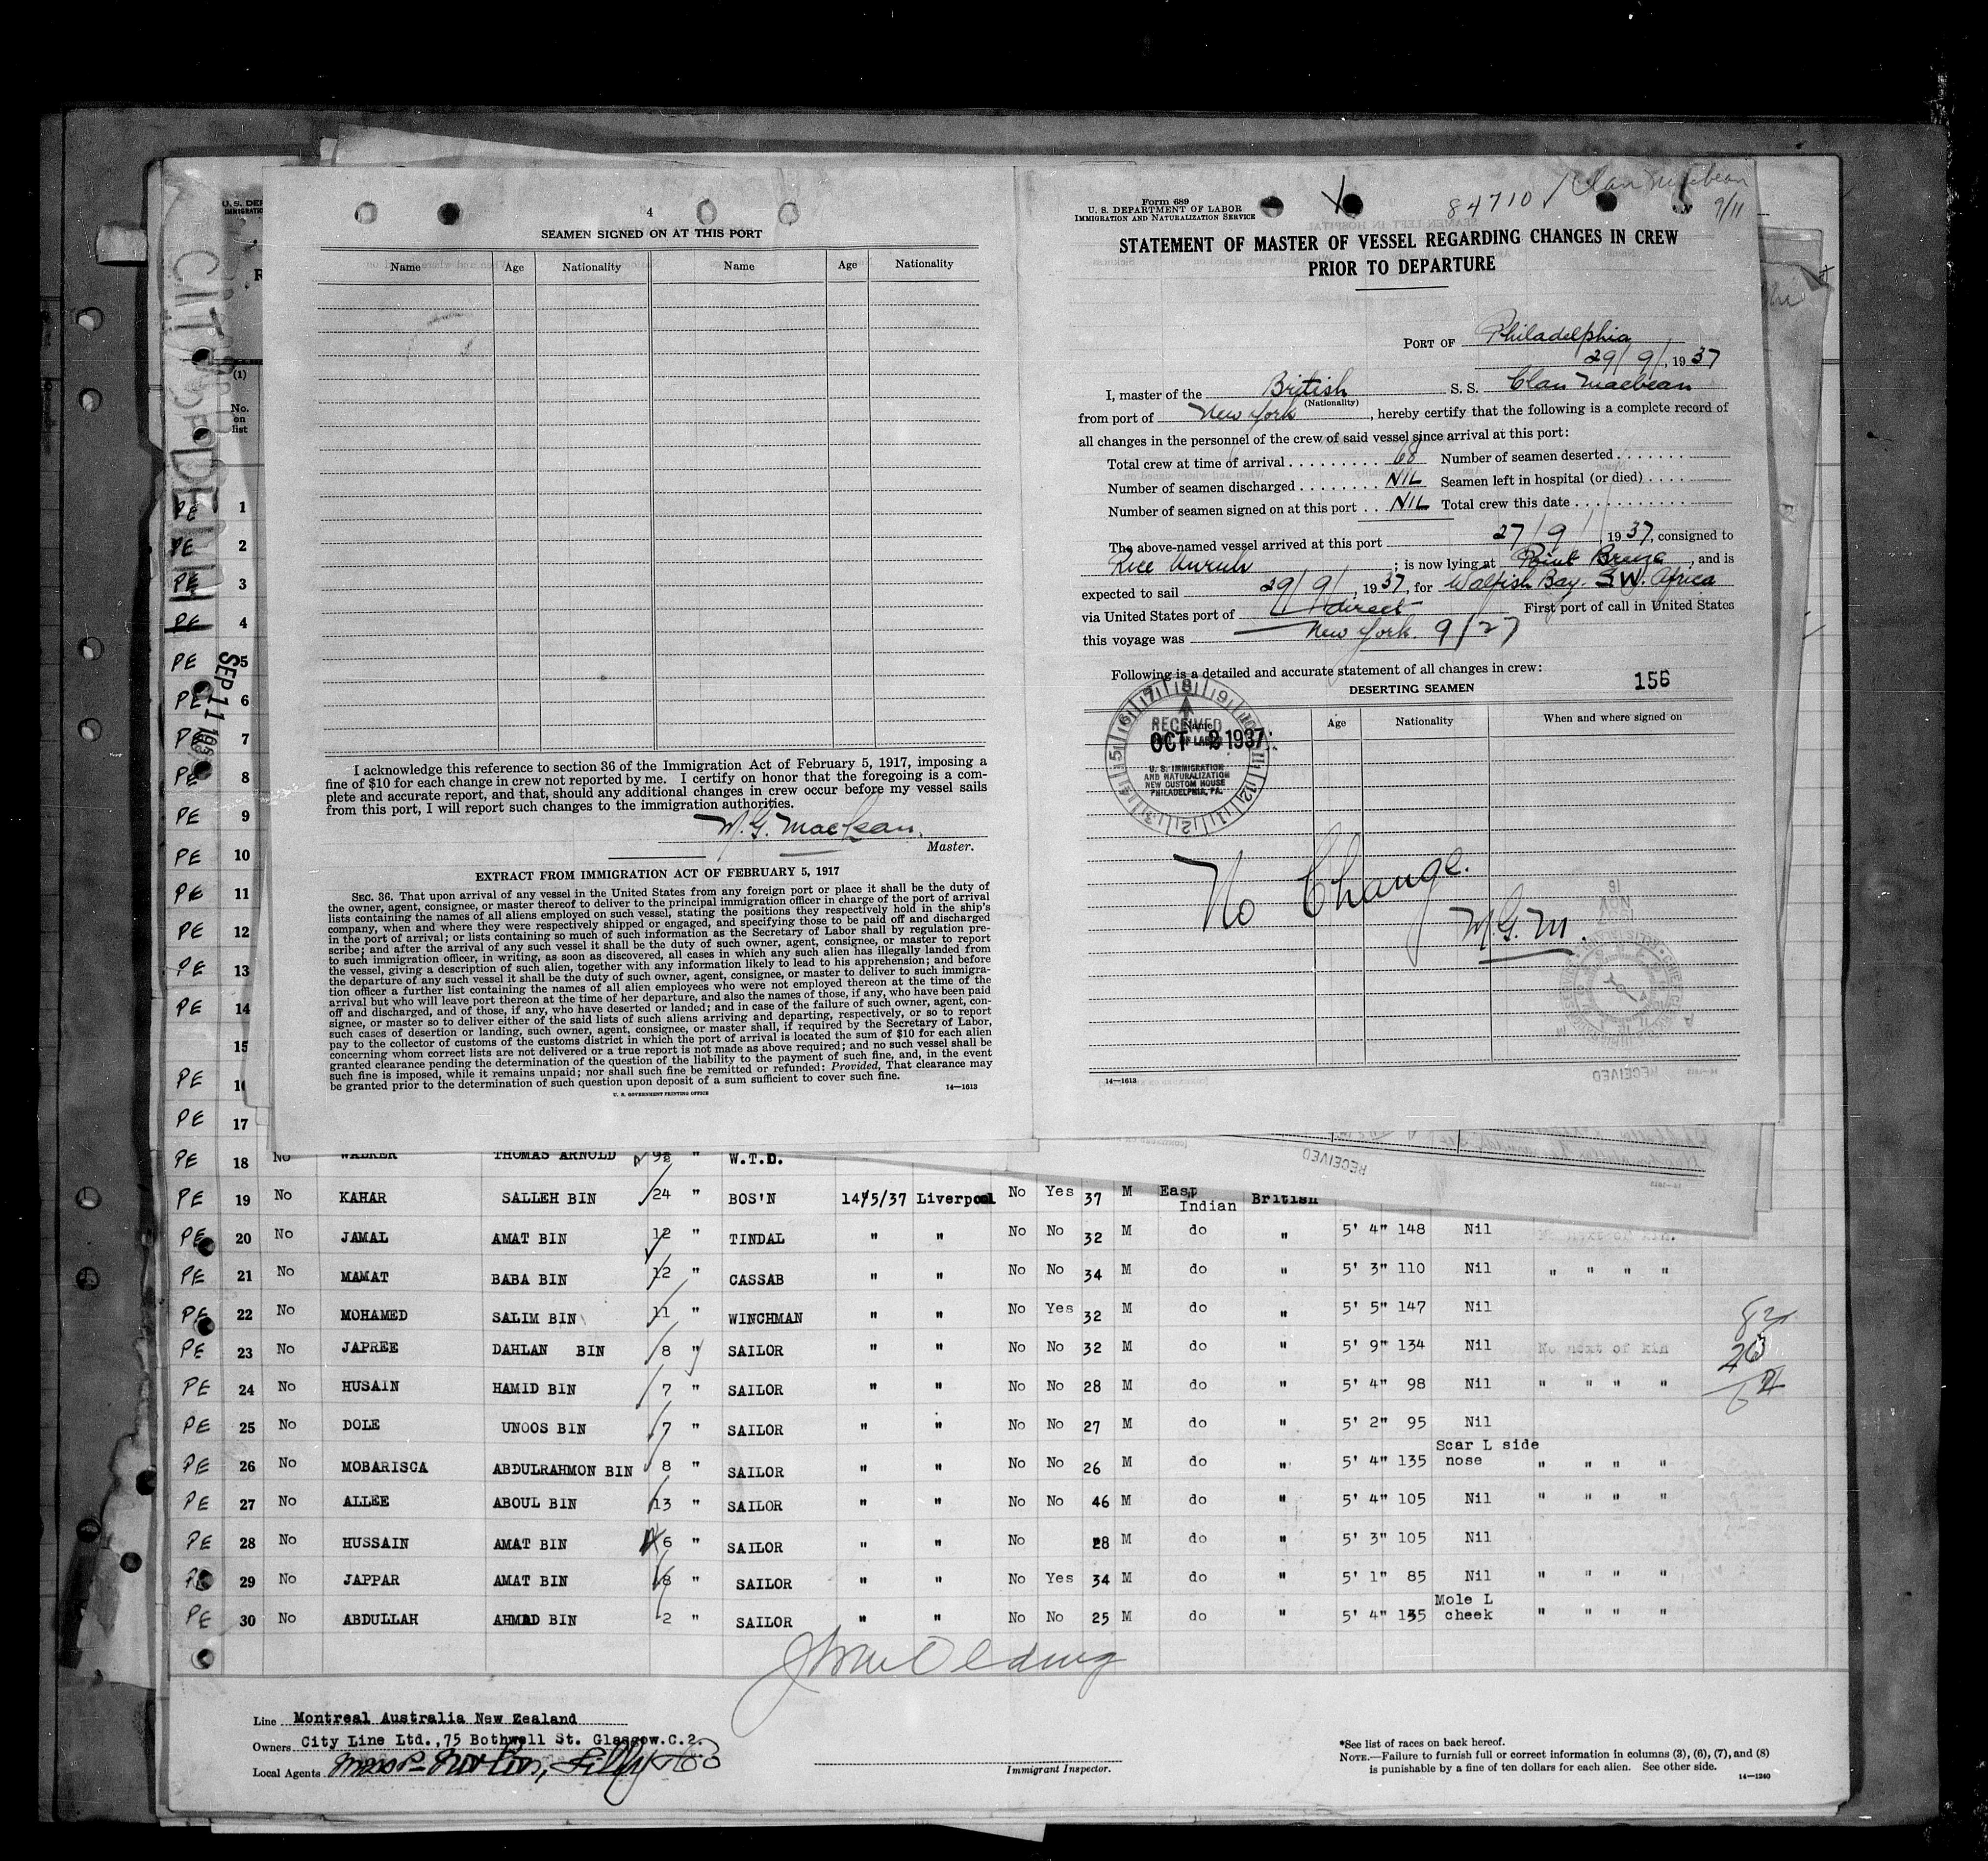 4
SEAMEN SIGNED ON AT THIS PORT
Name Age Nationality Name Age Nationality
I acknowledge this reference to section 36 of the Immigration Act of February 5, 1917, imposing a
fine of $10 for each change in crew not reported by me. I certify on honor that the foregoing is a com-
plete and accurate report, and that, should any additional changes in crew occur before my vessel sails
from this port, I will report such changes to the immigration authorities.
M. G. MacLean.
Master.
EXTRACT FROM IMMIGRATION ACT OF FEBRUARY 5, 1917
SEC. 36. That upon arrival of any vessel in the United States from any foreign port or place it shall be the duty of
the owner, agent, consignee, or master thereof to deliver to the principal immigration officer in charge of the port of arrival
lists containing the names of all aliens employed on such vessel, stating the positions they respectively hold in the ship's
company, when and where they were respectively shipped or engaged, and specifying those to be paid off and discharged
in the port of arrival; or lists containing so much of such information as the Secretary of Labor shall by regulation pre-
scribe; and after the arrival of any such vessel it shall be the duty of such owner, agent, consignee, or master to report
to such immigration officer, in writing, as soon as discovered, all cases in which any such alien has illegally landed from
the vessel, giving a description of such alien, together with any information likely to lead to his apprehension; and before
the departure of any such vessel it shall be the duty of such owner, agent, consignee, or master to deliver to such immigra-
tion officer a further list containing the names of all alien employees who were not employed thereon at the time of the
arrival but who will leave port thereon at the time of her departure, and also the names of those, if any, who have been paid
off and discharged, and of those, if any, who have deserted or landed; and in case of the failure of such owner, agent, con-
signee, or master so to deliver either of the said lists of such aliens arriving and departing, respectively, or so to report
such cases of desertion or landing, such owner, agent, consignee, or master shall, if required by the Secretary of Labor,
pay to the collector of customs of the customs district in which the port of arrival is located the sum of $10 for each alien
concerning whom correct lists are not delivered or a true report is not made as above required; and no such vessel shall be
granted clearance pending the determination of the question of the liability to the payment of such fine, and, in the event
such fine is imposed, while it remains unpaid; nor shall such fine be remitted or refunded: Provided, That clearance may
be granted prior to the determination of such question upon deposit of a sum sufficient to cover such fine.
14—1613
U. S. GOVERNMENT PRINTING OFFICE
Form 689
U. S. DEPARTMENT OF LABOR
IMMIGRATION AND NATURALIZATION SERVICE
84710
Clan Macbean
9/11
STATEMENT OF MASTER OF VESSEL REGARDING CHANGES IN CREW
PRIOR TO DEPARTURE
PORT OF Philadelphia
29/9/, 1937
I, master of the British S. S. Clan Macbean
(Nationality)
from port of New York, hereby certify that the following is a complete record of
all changes in the personnel of the crew of said vessel since arrival at this port:
Total crew at time of arrival 68 Number of seamen deserted
Number of seamen discharged NIL Seamen left in hospital (or died)
Number of seamen signed on at this port NIL Total crew this date
The above-named vessel arrived at this port 27/9/, 1937, consigned to
Rice Unruh; is now lying at Point Breeze, and is
expected to sail 29/9/, 1937, for Walfish Bay. S.W. Africa
via United States port of direct First port of call in United States
this voyage was New York. 9/27
Following is a detailed and accurate statement of all changes in crew:
DESERTING SEAMEN
156
Name Age Nationality When and where signed on
RECEIVED
OCT 2 1937
U. S. IMMIGRATION
AND NATURALIZATION
NEW CUSTOM HOUSE
PHILADELPHIA, PA.
No Change.
M.G.M.
14—1613
U. S. DEP
IMMIGRATIO
(1)
No.
on
list
SEP 11
PE 1
PE 2
PE 3
PE 4
PE 5
PE 6
PE 7
PE 8
PE 9
PE 10
PE 11
PE 12
PE 13
PE 14
15
PE 16
PE 17
PE 18 No WALKER THOMAS ARNOLD " W.T.D.
PE 19 No KAHAR SALLEH BIN 24 " BOS'N 14/5/37 Liverpool No Yes 37 M East Indian British
PE 20 No JAMAL AMAT BIN 12 " TINDAL " " No No 32 M do " 5' 4" 148 Nil
PE 21 No MAMAT BABA BIN 12 " CASSAB " " No No 34 M do " 5' 3" 110 Nil " " " "
PE 22 No MOHAMED SALIM BIN 11 " WINCHMAN " " No Yes 32 M do " 5' 5" 147 Nil
PE 23 No JAPREE DAHLAN BIN 8 " SAILOR " " No No 32 M do " 5' 9" 134 Nil No next of kin
PE 24 No HUSAIN HAMID BIN 7 " SAILOR " " No No 28 M do " 5' 4" 98 Nil " " " "
PE 25 No DOLE UNOOS BIN 7 " SAILOR " " No No 27 M do " 5' 2" 95 Nil
PE 26 No MOBARISCA ABDULRAHMON BIN 8 " SAILOR " " No No 26 M do " 5' 4" 135 Scar L side nose " " " "
PE 27 No ALLEE ABOUL BIN 13 " SAILOR " " No No 46 M do " 5' 4" 105 Nil " " " "
PE 28 No HUSSAIN AMAT BIN 6 " SAILOR " " No 28 M do " 5' 3" 105 Nil
PE 29 No JAPPAR AMAT BIN 8 " SAILOR " " No Yes 34 M do " 5' 1" 85 Nil " " " "
PE 30 No ABDULLAH AHMAD BIN 2 " SAILOR " " No No 25 M do " 5' 4" 135 Mole L cheek " " " "
Line Montreal Australia New Zealand
Owners City Line Ltd., 75 Bothwell St. Glasgow.C.2.
Local Agents Norton, Lilly & Co
Immigrant Inspector.
*See list of races on back hereof.
NOTE.—Failure to furnish full or correct information in columns (3), (6), (7), and (8)
is punishable by a fine of ten dollars for each alien. See other side.
14—1240